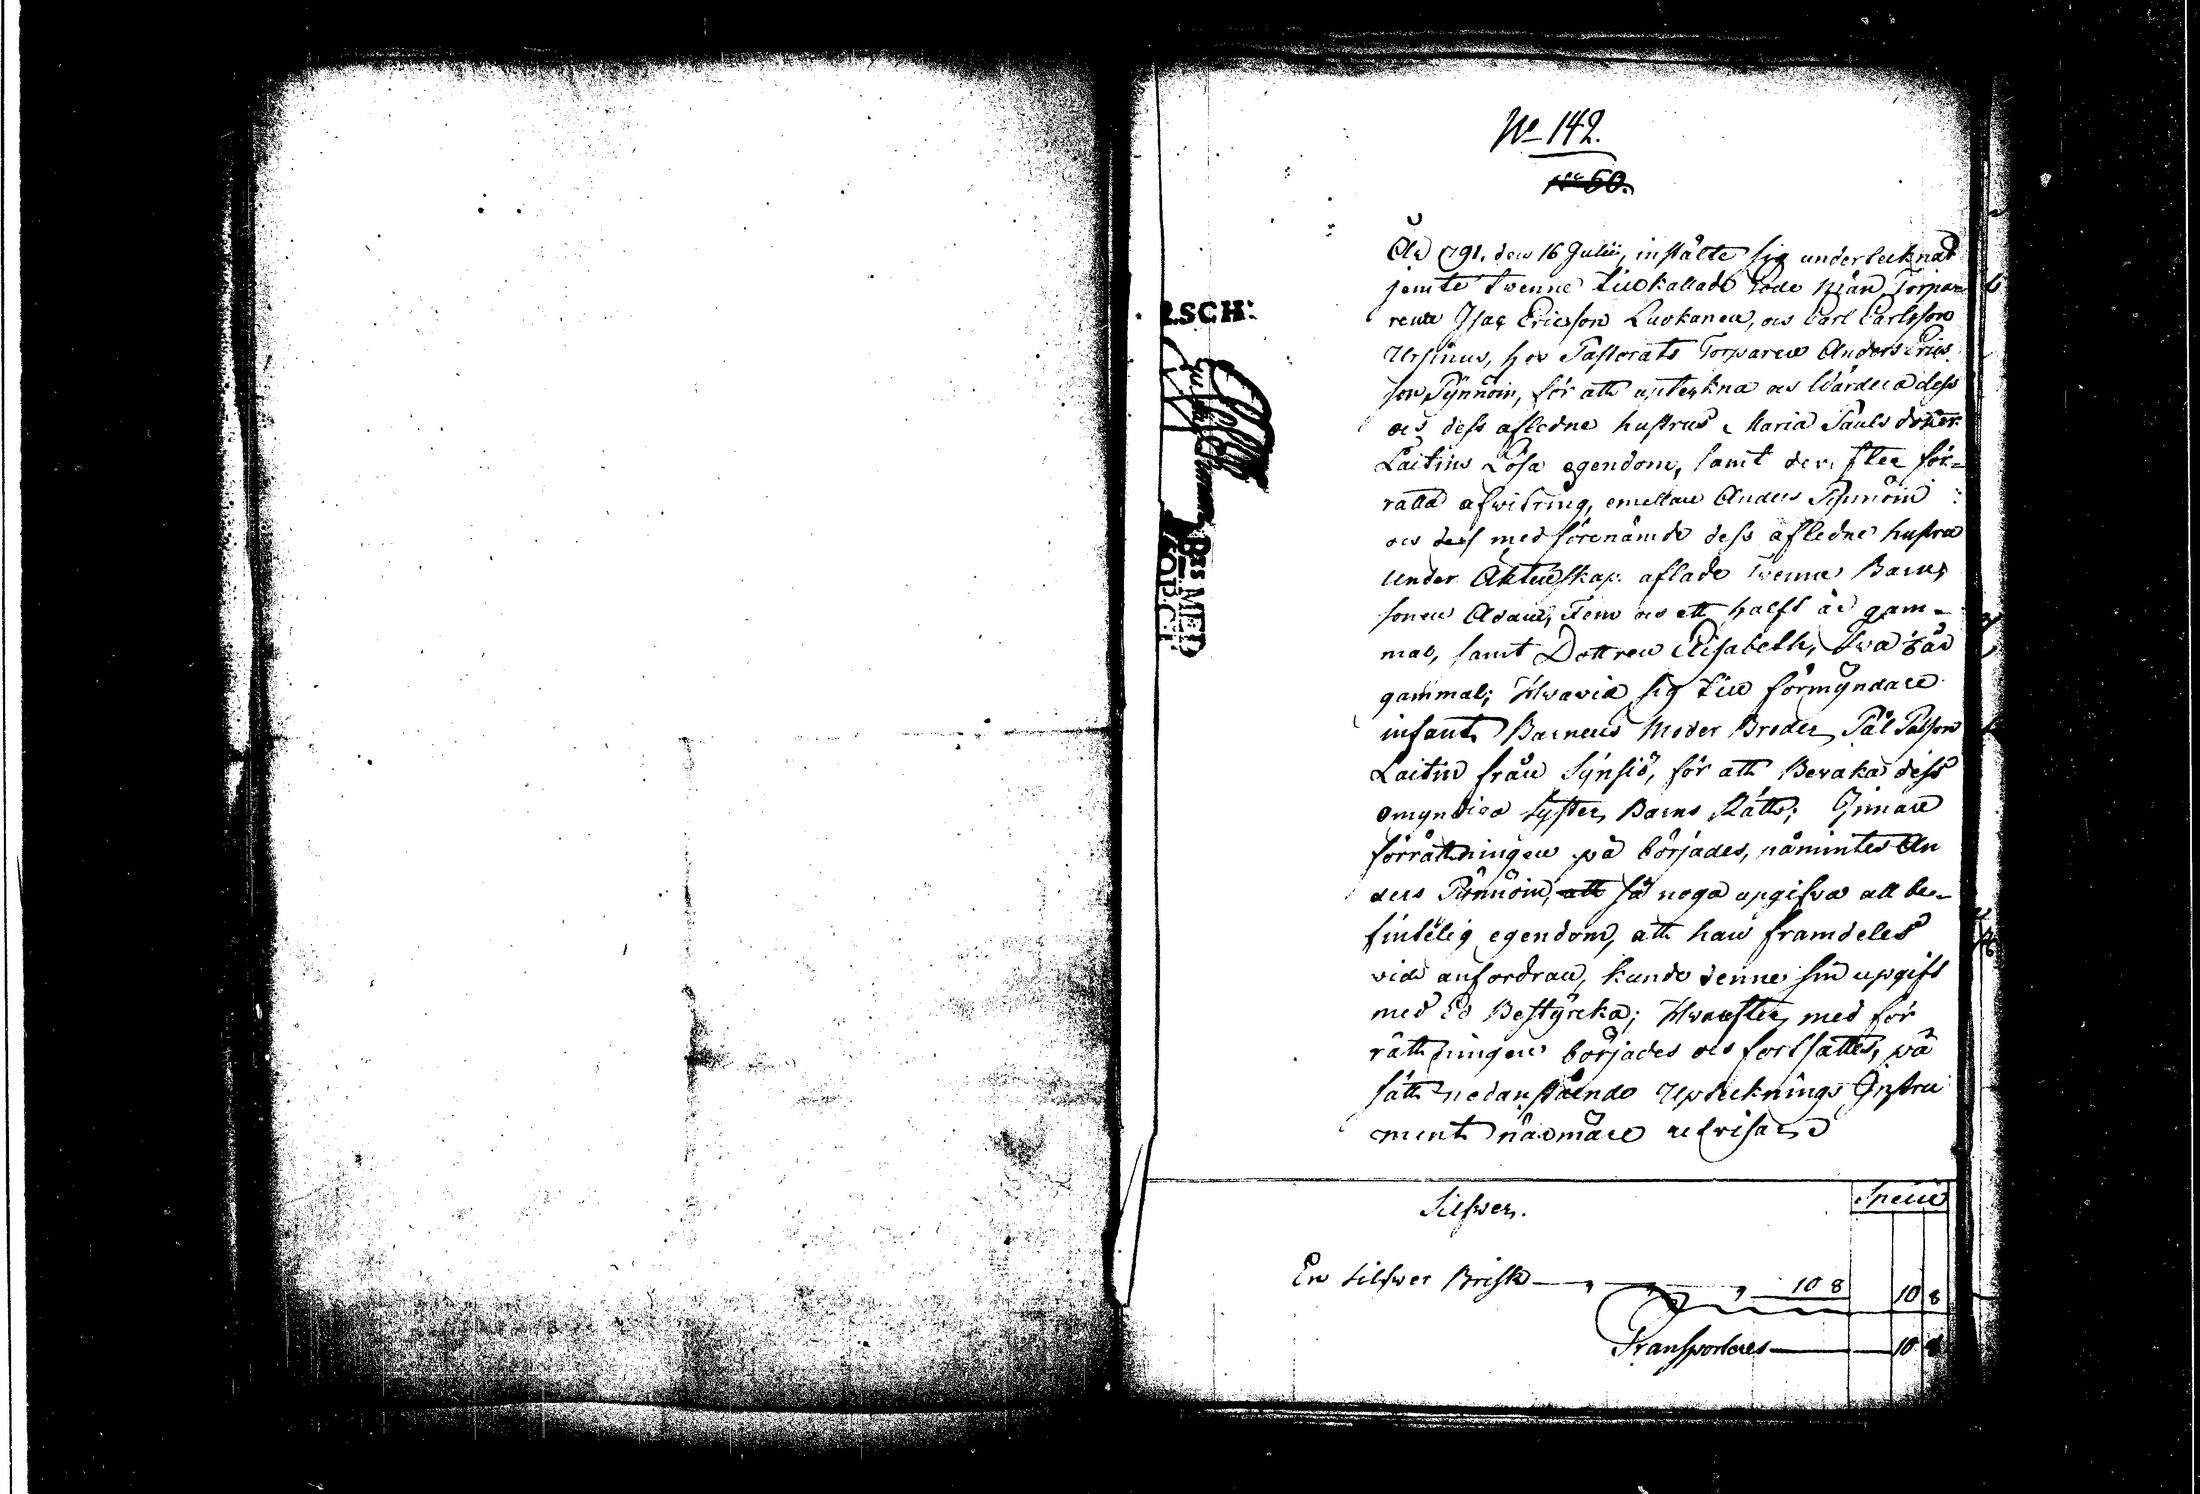 No 142.
No 60.
År 1791. den 16 Julii, instälte sig undertecknad
jemte twenne tilkallade Gode Män Torpa-
rena Isac Ericsson Luokanen, och Carl Carlsson
Ursinus, hos Pastorats Torparen Anders Erics
son Pÿnnöin, för att upteckna och Wärdera dess
och dess afledne hustrus Maria Pauls dotter
Laitins Lösa egendom, samt derefter för-
rätta afwitring, emellan Anders Pynnöin
och dess med förenämde dess afledne hustru
under Äktenskap aflade twenne Barn,
sonen Adam, Fem och ett halft år gam-
mal, samt Dottren Elisabeth, Twa år
gammal; Hwarvid sig till förmyndare
infant Barnens Moder Broder, Pål Palson
Laitin från Synsiö, för att Bevaka dess
omyndiga Syster Barns Rätt; Innan
förrättningen på börjades, påmintes An
ders Pÿnnöin, att så noga upgifva all be-
fintelig egendom, att han framdeles
vid anfordran, kunde denne sin upgift
med Ed Bestyrcka; Hwarefter med för
rättningen börjades och fortsattes, på
sätt nedanstående Uptecknings Instru
ment närmare utvisar
Silfwer.
Specie
En Silfwer Brisk — 10 8 10 8
Transporteres — 10 8
RSCH: